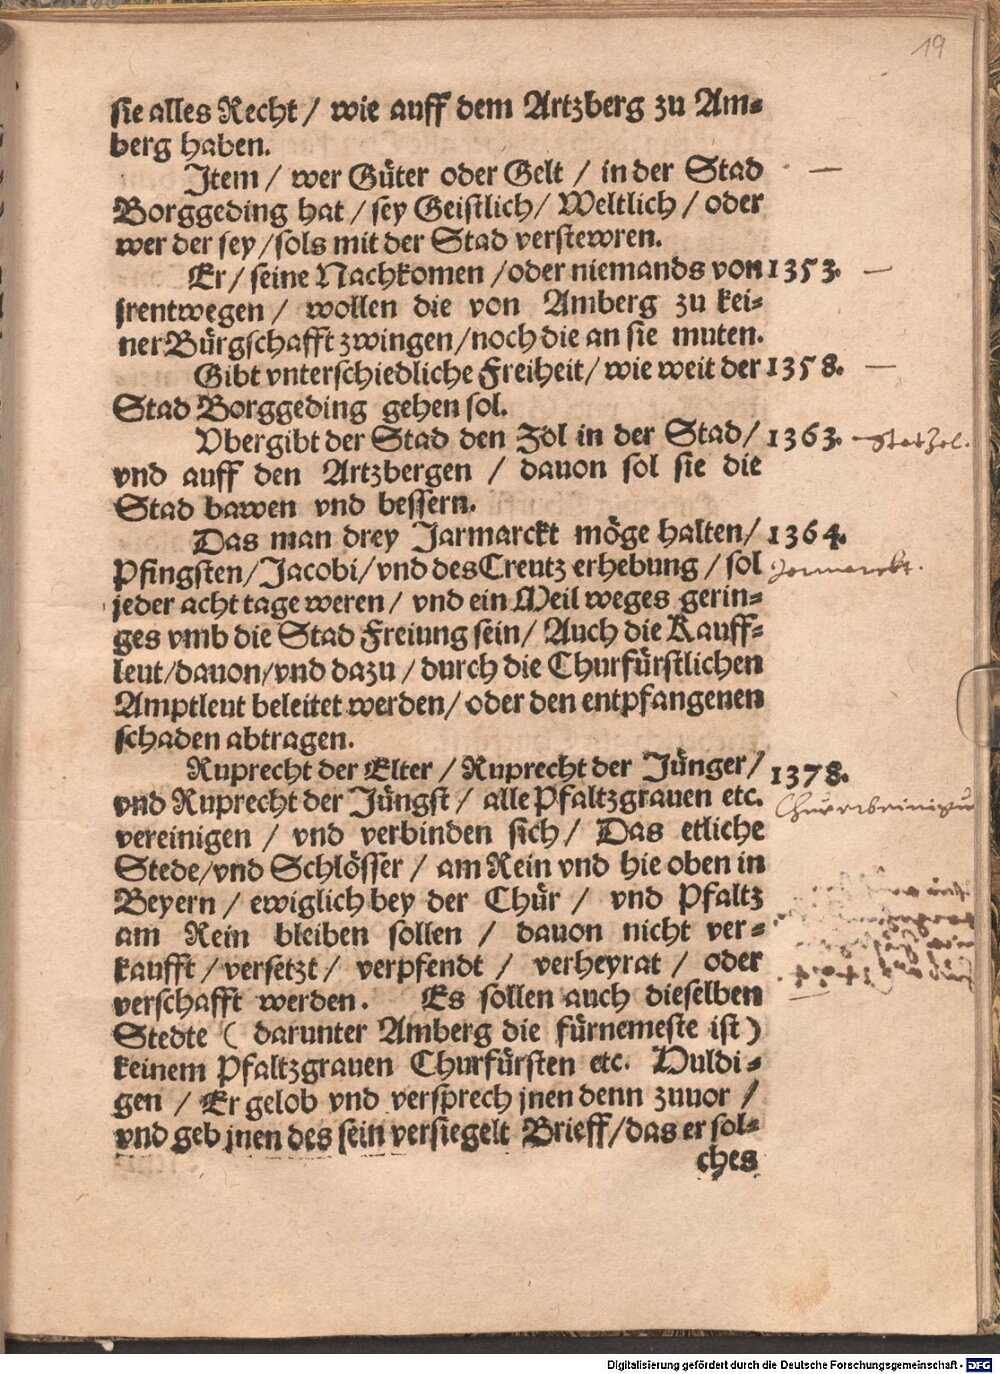 19
sie alles Recht / wie auff dem Artzberg zu Am⸗
berg haben.
Item / wer Güter oder Gelt / in der Stad
Borggeding hat / sey Geistlich / Weltlich / oder
wer der sey / sols mit der Stad verstewren.
Er / seine Nachkomen / oder niemands von 1353.
jrentwegen / wollen die von Amberg zu kei⸗
ner Bürgschafft zwingen / noch die an sie muten.
Gibt vnterschiedliche Freiheit / wie weit der 1358.
Stad Borggeding gehen sol.
Vbergibt der Stad den Zol in der Stad / 1363. Stat Zol.
vnd auff den Artzbergen / dauon sol sie die
Stad bawen vnd bessern.
Das man drey Jarmarckt möge halten / 1364.
Pfingsten / Jacobi / vnd des Creutz erhebung / sol Jarmarckt.
jeder acht tage weren / vnd ein Meil weges gerin⸗
ges vmb die Stad Freiung sein / Auch die Kauff⸗
leut / dauon / vnd dazu / durch die Churfürstlichen
Amptleut beleitet werden / oder den entpfangenen
schaden abtragen.
Ruprecht der Elter / Ruprecht der Jünger / 1378.
vnd Ruprecht der Jüngst / alle Pfaltzgrauen etc.
vereinigen / vnd verbinden sich / Das etliche
Stede / vnd Schlösser / am Rein vnd hie oben in
Beyern / ewiglich bey der Chür / vnd Pfaltz
am Rein bleiben sollen / dauon nicht ver⸗
kaufft / versetzt / verpfendt / verheyrat / oder
verschafft werden. Es sollen auch dieselben
Stedte ( darunter Amberg die fürnemeste ist )
keinem Pfaltzgrauen Churfürsten etc. Huldi⸗
gen / Er gelob vnd versprech jnen denn zuuor /
vnd geb jnen des sein versiegelt Brieff / das er sol⸗
ches
Digitalisierung gefördert durch die Deutsche Forschungsgemeinschaft - DFG